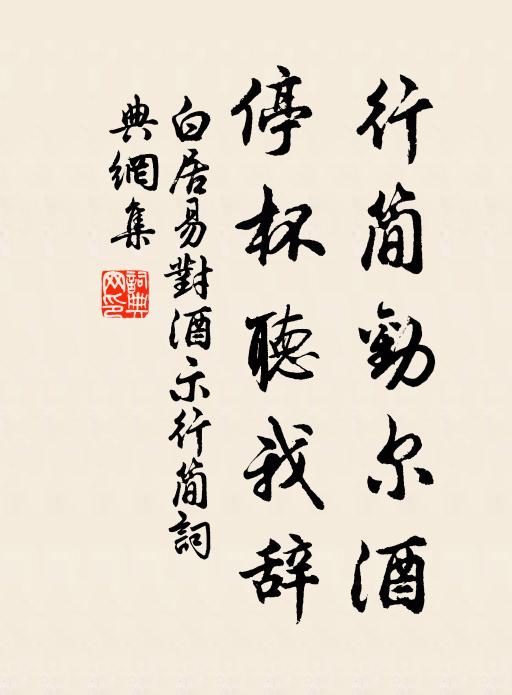 行简勸尔酒
停杯聽我辞
白居易對酒示行简詞
典網集
詞典网印